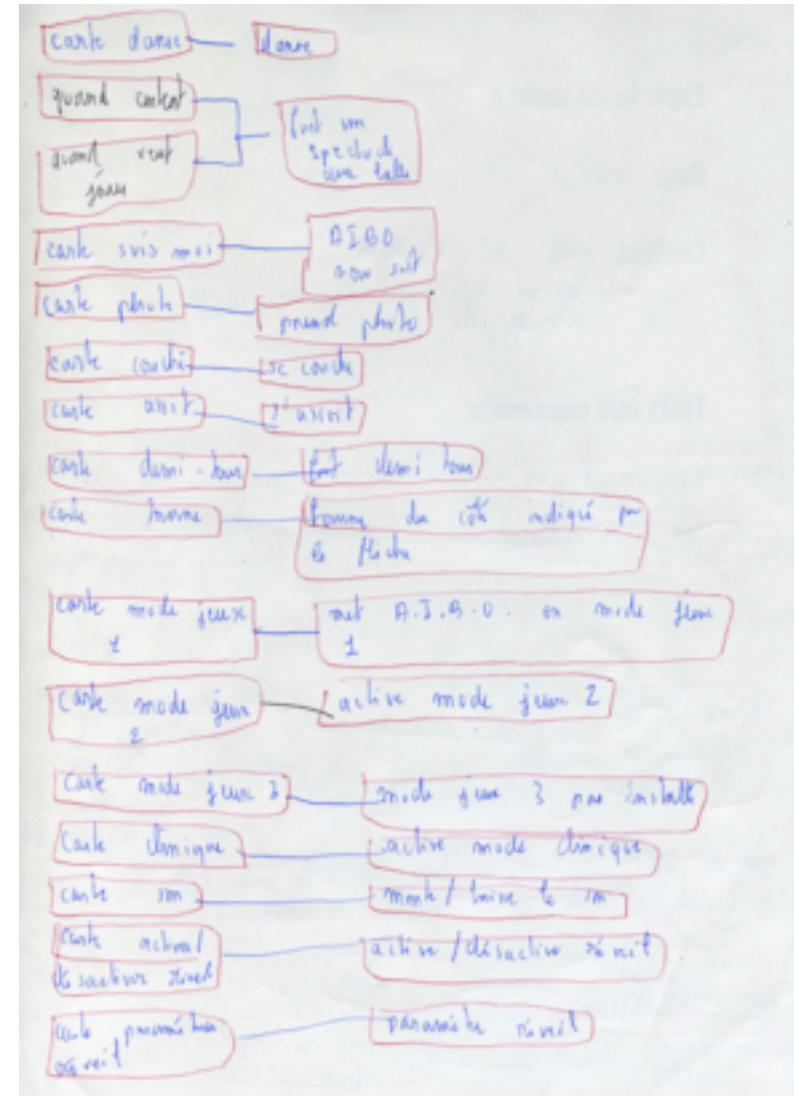 carte danse danse
quand content
fait son
spectacle
avec balle
quand veut
jouer
carte suis moi AIBO
nous suit
carte photo prend photo
carte couché se couche
carte assit s'assoit
carte demi-tour fait demi tour
carte tourne tourne du côté indiqué par
la flèche
carte mode jeux met A.I.B.O. en mode jeux
1 1
carte mode jeux active mode jeux 2
2
carte mode jeux 3 mode jeux 3 pas installé
carte clinique active mode clinique
carte son monte/baisse le son
carte activer/ active/désactive réveil
désactiver réveil
carte paramètre paramètre réveil
réveil